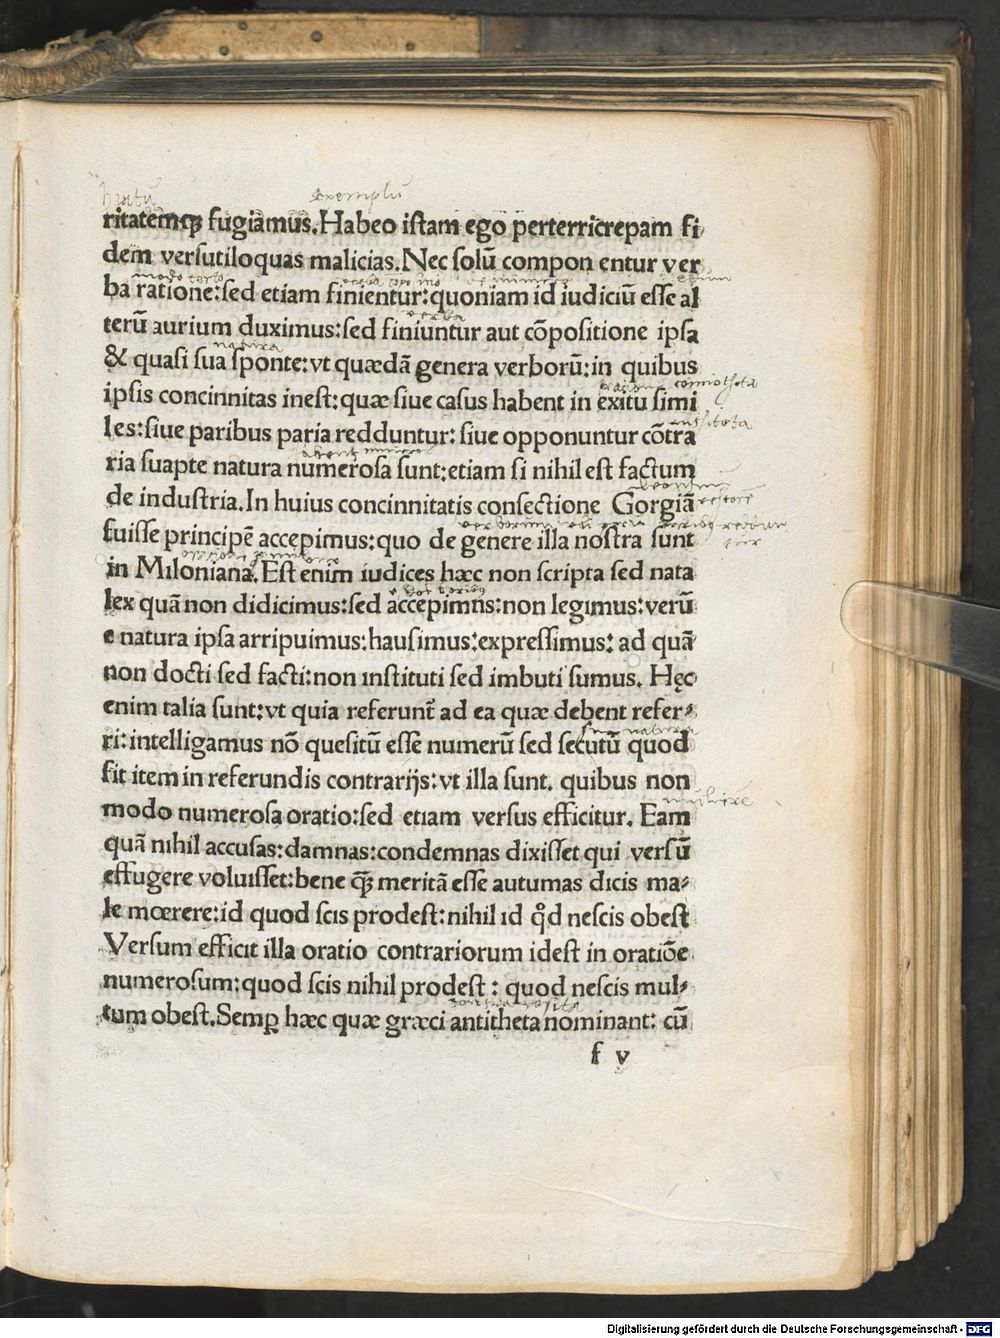 hiatū exemplū
ritatemqꝫ fugiamus.Habeo istam ego perterricrepam fi
dem versutiloquas malicias.Nec solū compon entur ver
ba ratione:sed etiam finientur:quoniam id iudiciū esse al
verba
terū aurium duximus:sed finiuntur aut cōpositione ipsa
natura
& quasi sua sponte:vt quædā genera verborū:in quibus
ipsis concinnitas inest:quæ siue casus habent in exitu simi
les:siue paribus paria redduntur:siue opponuntur cōtra
ria suapte natura numerosa sunt:etiam si nihil est factum
de industria.In huius concinnitatis consectione Gorgiā
fuisse principē accepimus:quo de genere illa nostra sunt
in Miloniana.Est enim iudices hæc non scripta sed nata
lex quā non didicimus:sed accepimns:non legimus:verū
e natura ipsa arripuimus:hausimus:expressimus: ad quā
non docti sed facti:non instituti sed imbuti sumus. Hęc
enim talia sunt:vt quia referunt̄ ad ea quæ debent refer⸗
ri:intelligamus nō quesitū esse numerū sed secutū quod
fit item in referundis contrarijs:vt illa sunt. quibus non
modo numerosa oratio:sed etiam versus efficitur. Eam
quā nihil accusas:damnas:condemnas dixisset qui versū
effugere voluisset:bene q̄ꝫ meritā esse autumas dicis ma⸗
le mœrere:id quod scis prodest:nihil id qd̄ nescis obest
Versum efficit illa oratio contrariorum idest in oratiōe
numerosum:quod scis nihil prodest : quod nescis mul⸗
tum obest.Semꝑ hæc quæ græci antitheta nominant: cū
f v
Digitalisierung gefördert durch die Deutsche Forschungsgemeinschaft - DFG